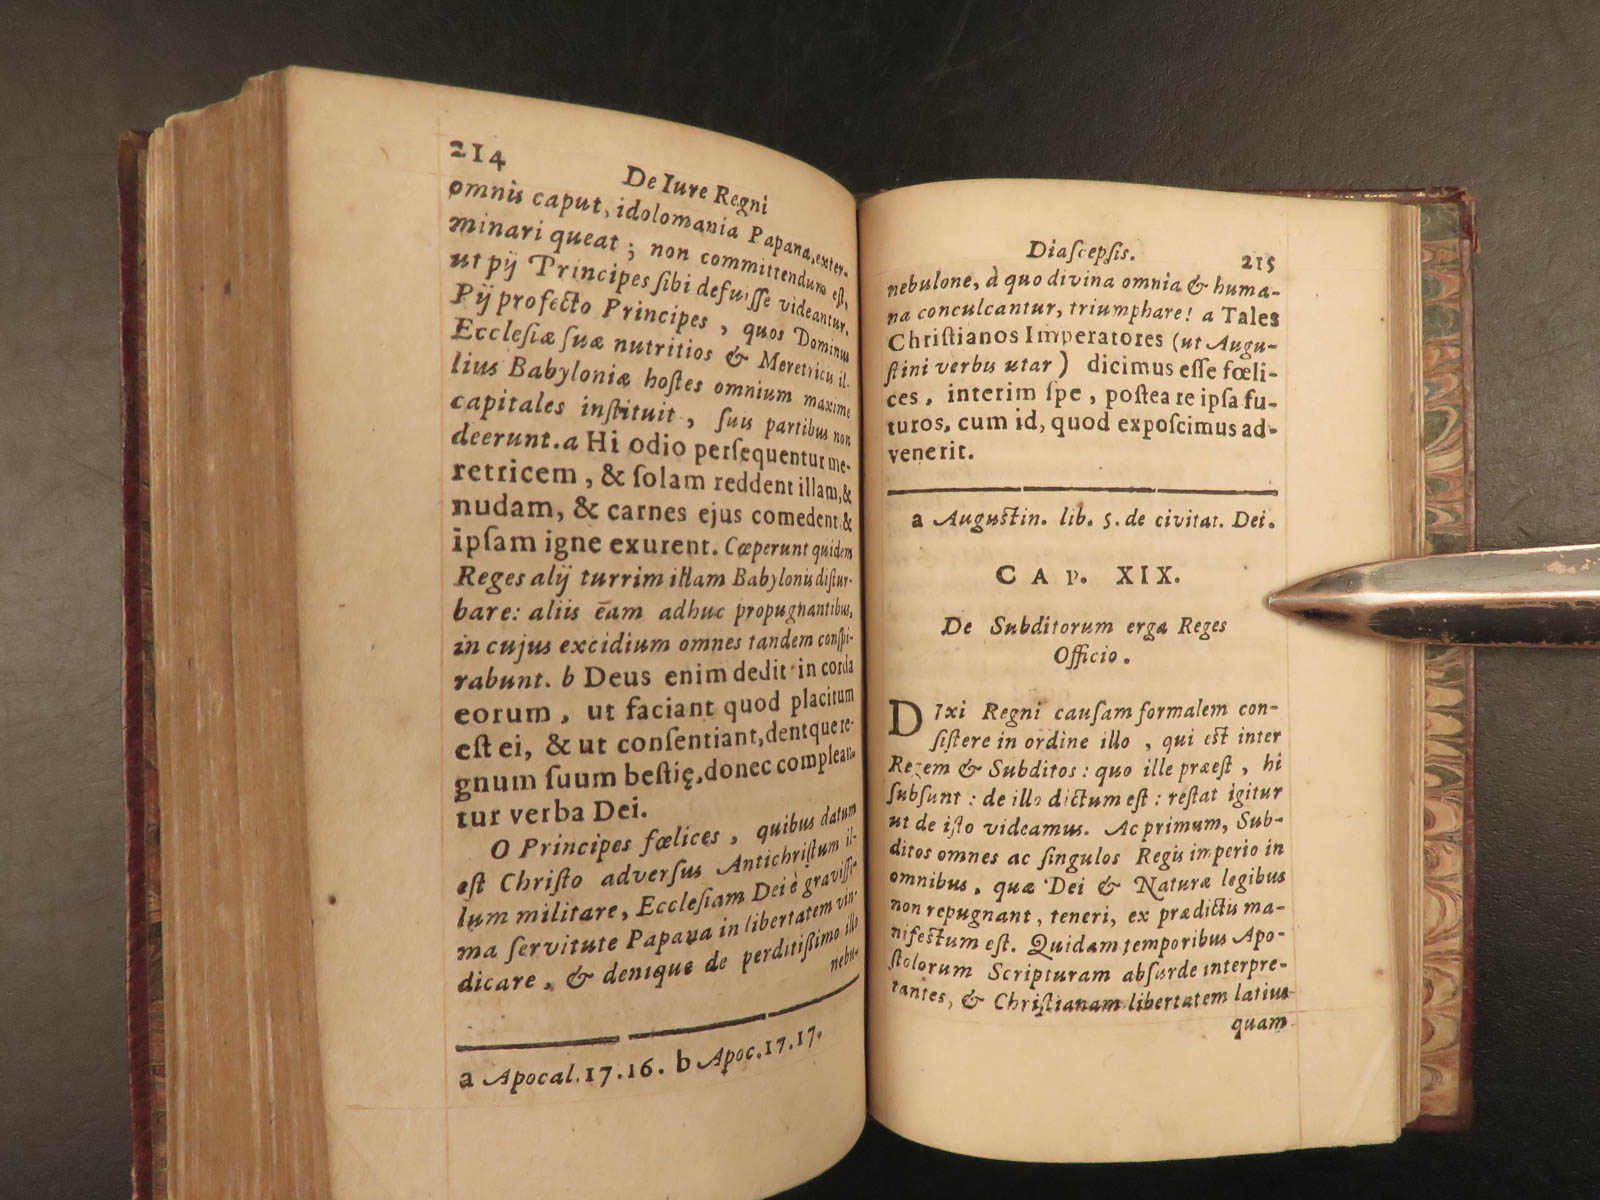 214
De Iure Regni
omnis caput, idolomania Papana, exter-
minari queat ; non committendum est,
ut pij Principes sibi defuiſſe videantur.
Pij profecto Principes , quos Dominus
Eccleſiæ ſuæ nutritios & Meretricis il-
lius Babyloniæ hoſtes omnium maxime
capitales inſtituit , ſuis partibus non
deerunt. a Hi odio perſequentur me-
retricem , & ſolam reddent illam, &
nudam, & carnes ejus comedent &
ipſam igne exurent. Cœperunt quidem
Reges alij turrim illam Babylonis diſtur-
bare: aliis eam adhuc propugnantibus,
in cujus excidium omnes tandem conſpi-
rabunt. b Deus enim dedit in corda
eorum , ut faciant quod placitum
eſt ei, & ut conſentiant, dentque re-
gnum ſuum beſtię, donec complean-
tur verba Dei.
O Principes fœlices , quibus datum
eſt Chriſto adverſus Antichriſtum il-
lum militare, Eccleſiam Dei è graviſſi-
ma ſervitute Papana in libertatem vin-
dicare , & denique de perditiſſimo illo
nebu-
a Apocal. 17.16. b Apoc. 17.17.
Diaſcepſis. 215
nebulone, à quo divina omnia & huma-
na conculcantur, triumphare! a Tales
Chriſtianos Imperatores (ut Augu-
ſtini verbis utar ) dicimus eſſe fœli-
ces , interim ſpe , poſtea re ipſa fu-
turos, cum id, quod expoſcimus ad-
venerit.
a Auguſtin. lib. 5. de civitat. Dei.
CAP. XIX.
De Subditorum erga Reges
Officio.
DIxi Regni cauſam formalem con-
ſiſtere in ordine illo , qui eſt inter
Regem & Subditos : quo ille præeſt , hi
ſubſunt : de illo dictum eſt : reſtat igitur
ut de iſto videamus. Ac primum, Sub-
ditos omnes ac ſingulos Regis imperio in
omnibus , quæ Dei & Naturæ legibus
non repugnant , teneri, ex prædictis ma-
nifeſtum eſt. Quidam temporibus Apo-
ſtolorum Scripturam abſurde interpre-
tantes, & Chriſtianam libertatem latius
quam